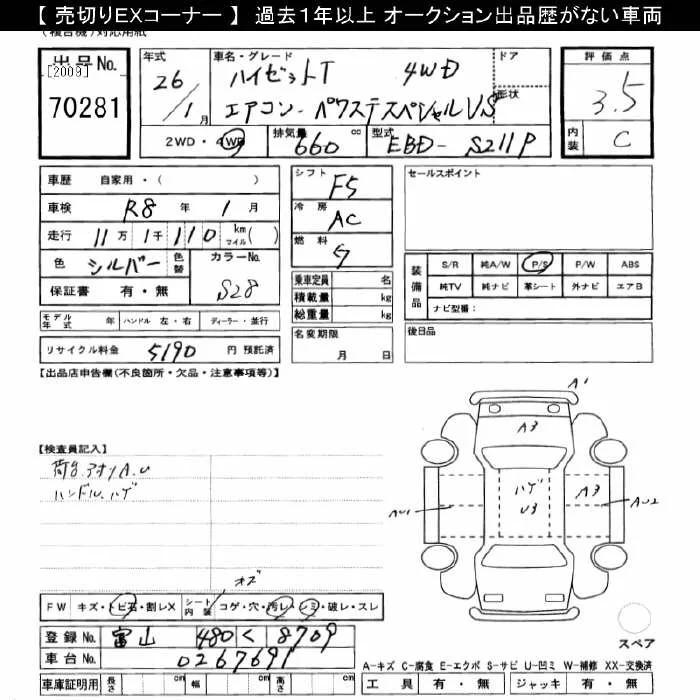 【 売切りEXコーナー 】 過去1年以上 オークション出品歴がない車両
対応用紙
出品No.
[2009]
70281
年式
26
/1月
車名・グレード
ハイゼットT 4WD
エアコン・パワステスペシャルVS
ドア
形状
2WD・4WD
排気量
660 cc
型式
EBD-S211P
評価点
3.5
内装
C
車歴 自家用・( )
車検 R8 年 1 月
走行 11万 1千 110 km マイル( )
色 シルバー 色替
カラーNo.
S28
保証書 有・無
シフト
F5
冷房
AC
燃料
ガ
乗車定員 名
積載量 kg
総重量 kg
セールスポイント
装備品
S/R 純A/W P/S P/W ABS
純TV 純ナビ 革シート 外ナビ エアB
ナビ型番:
モデル年式 年 ハンドル 左・右 ディーラー・並行
リサイクル料金 5190 円 預託済
名変期限
月 日
後日品
【出品店申告欄(不良箇所・欠品・注意事項等)】
【検査員記入】
荷台.アオリA.U
ハンドル.ハゲ
A1
A3
ハゲ
U3
A3
AU1
AU2
スペア
FW キズ・トビ石・割レX
シート内装 コゲ・穴・汚レ・シミ・破レ・スレ
登録No. 富山 480 く 8709
車台No. 0267691
車庫証明用 長さ cm 幅 cm 高さ cm
A-キズ C-腐食 E-エクボ S-サビ U-凹ミ W-補修 XX-交換済
工具 有・無 ジャッキ 有・無